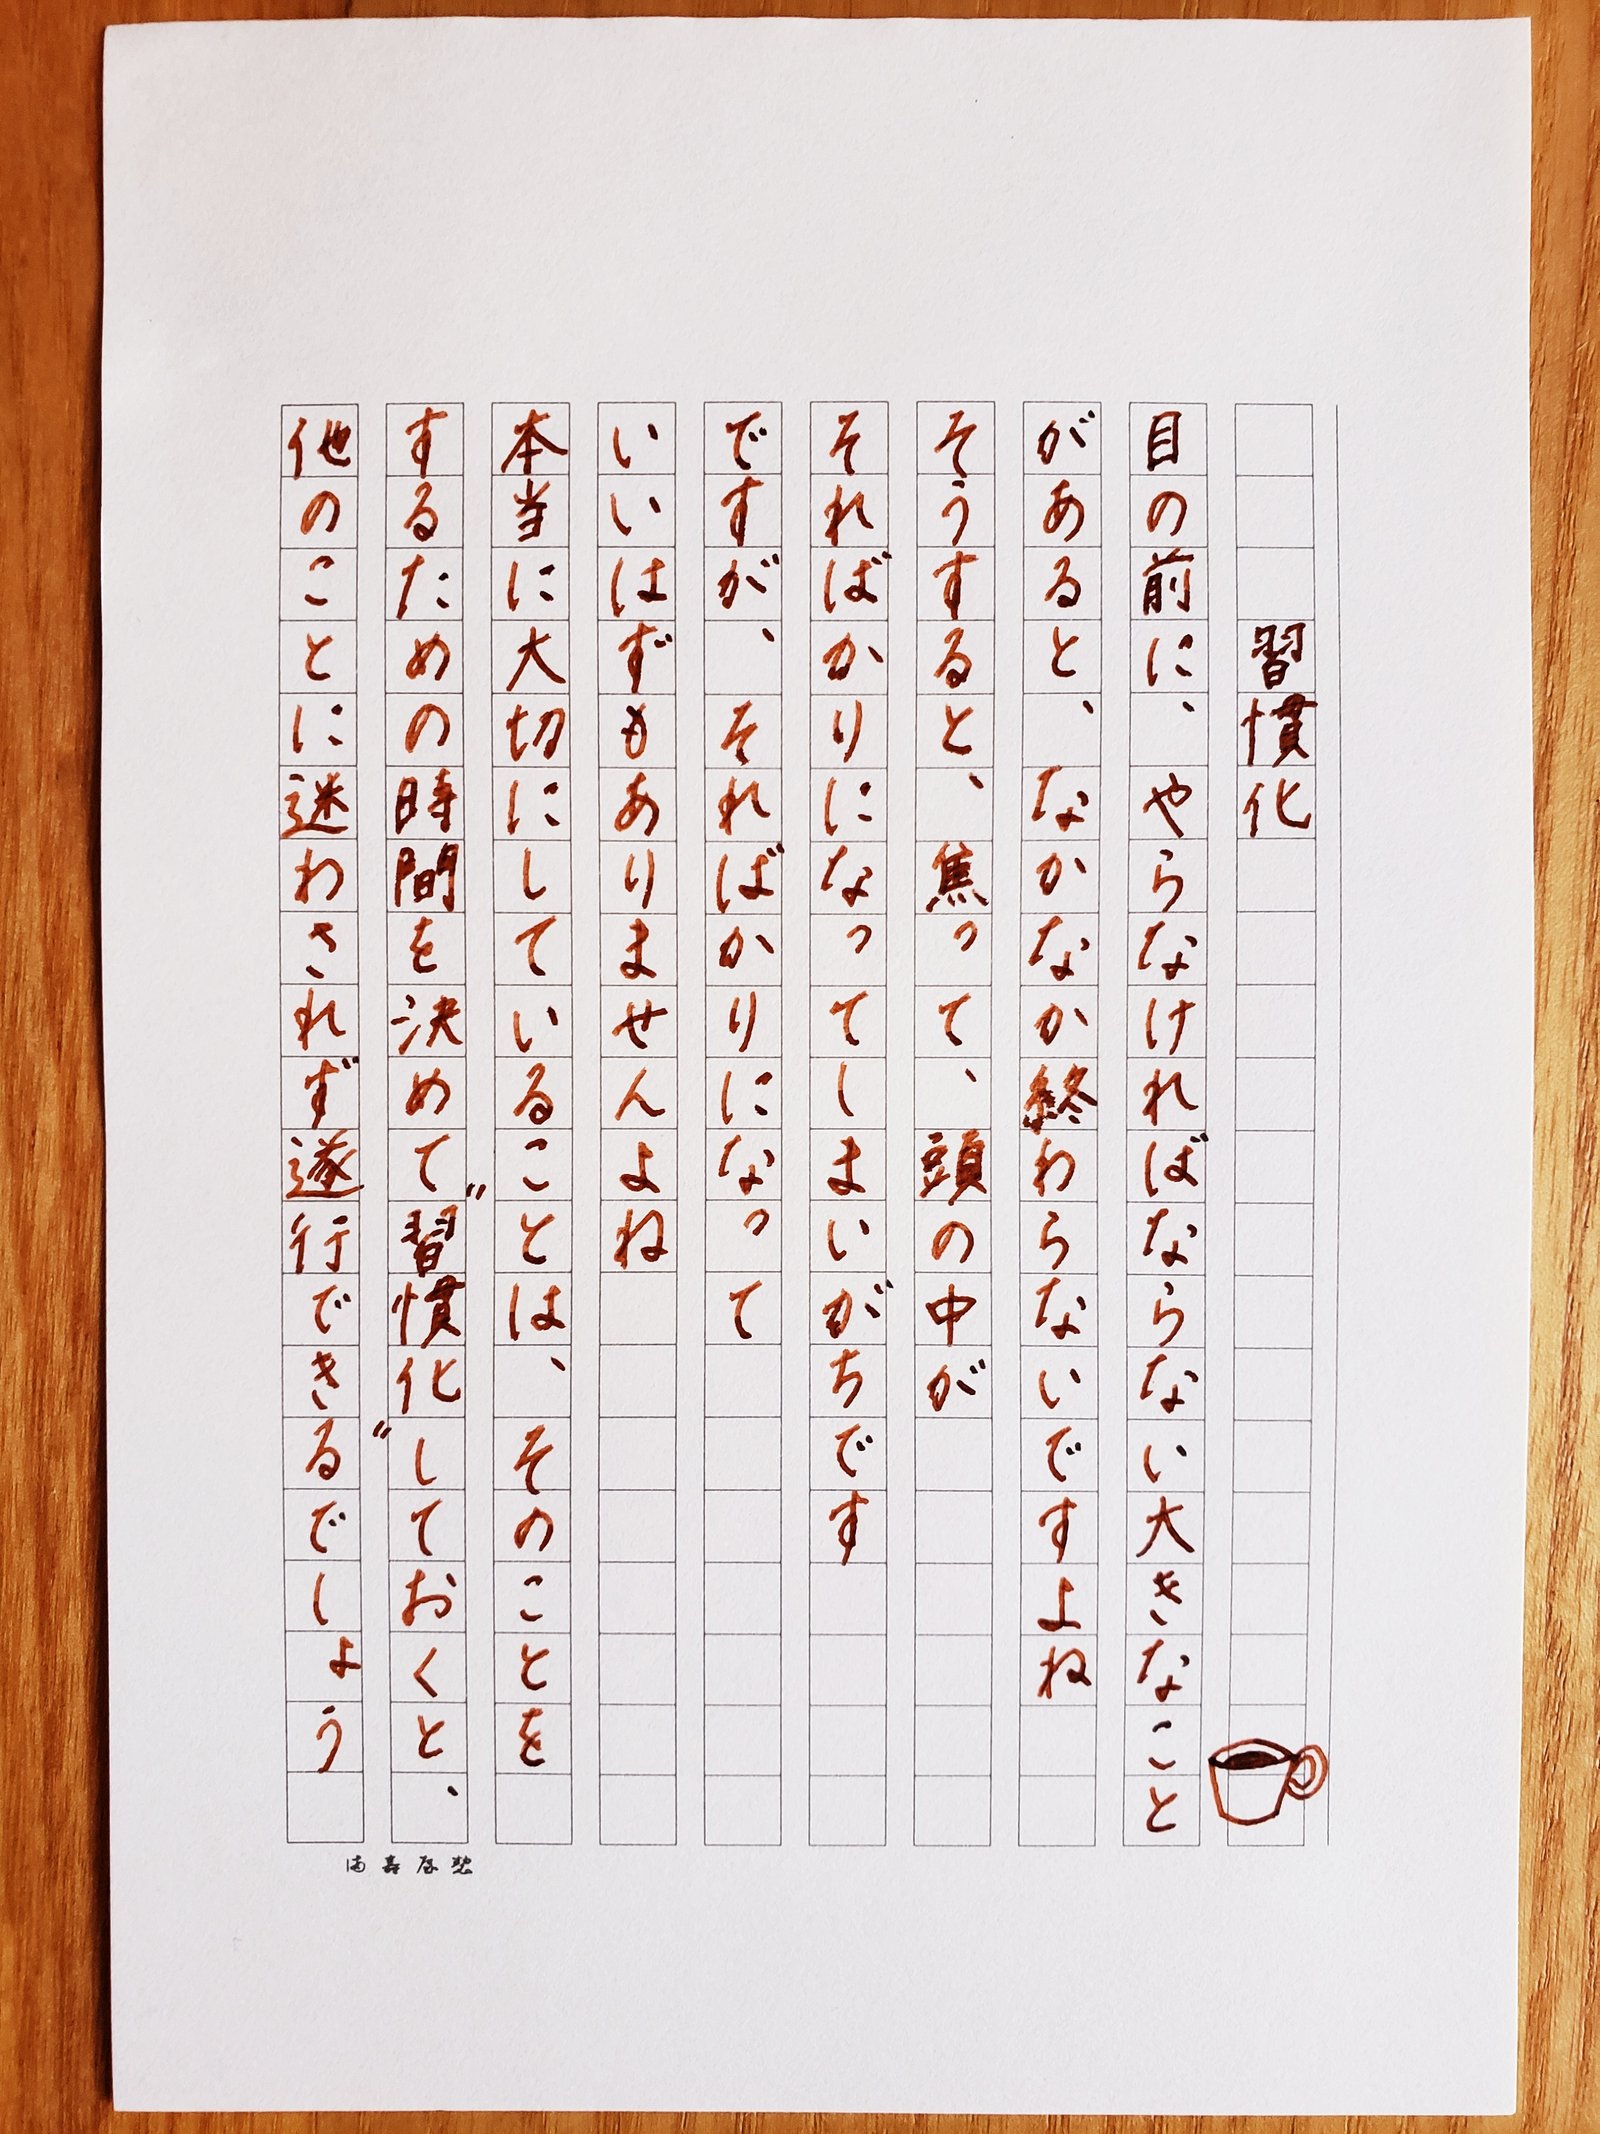 習慣化
目の前に、やらなければならない大きなこと
があると、なかなか終わらないですよね
そうすると、焦って、頭の中が
そればかりになってしまいがちです
ですが、そればかりになって
いいはずもありませんよね
本当に大切にしていることは、そのことを
するための時間を決めて〝習慣化〟しておくと、
他のことに迷わされず遂行できるでしょう